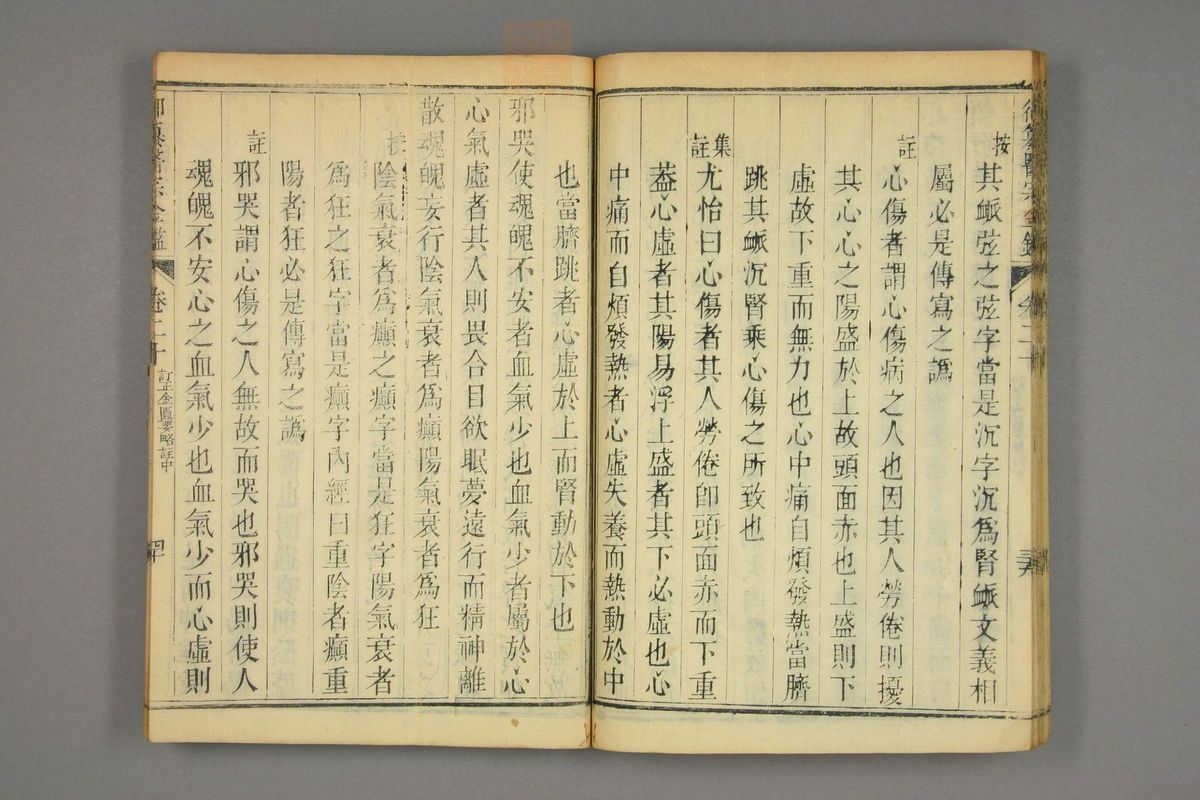 按
其衇弦之弦字當是沉字沉為腎衇文義相
屬必是傳寫之譌
註
心傷者謂心傷病之人也因其人勞倦則擾
其心心之陽盛於上故頭面赤也上盛則下
虛故下重而無力也心中痛自煩發熱當臍
跳其衇沉腎乘心傷之所致也
集註
尤怡曰心傷者其人勞倦即頭面赤而下重
葢心虛者其陽易浮上盛者其下必虛也心
中痛而自煩發熱者心虛失養而熱動於中
也當臍跳者心虛於上而腎動於下也
邪哭使魂魄不安者血氣少也血氣少者屬於心
心氣虛者其人則畏合目欲眠夢遠行而精神離
散魂魄妄行陰氣衰者為癲陽氣衰者為狂
按
陰氣衰者為癲之癲字當是狂字陽氣衰者
為狂之狂字當是癲字內經曰重陰者癲重
陽者狂必是傳寫之譌
註
邪哭謂心傷之人無故而哭也邪哭則使人
魂魄不安心之血氣少也血氣少而心虛則
卷二十
訂正金匱要略註中